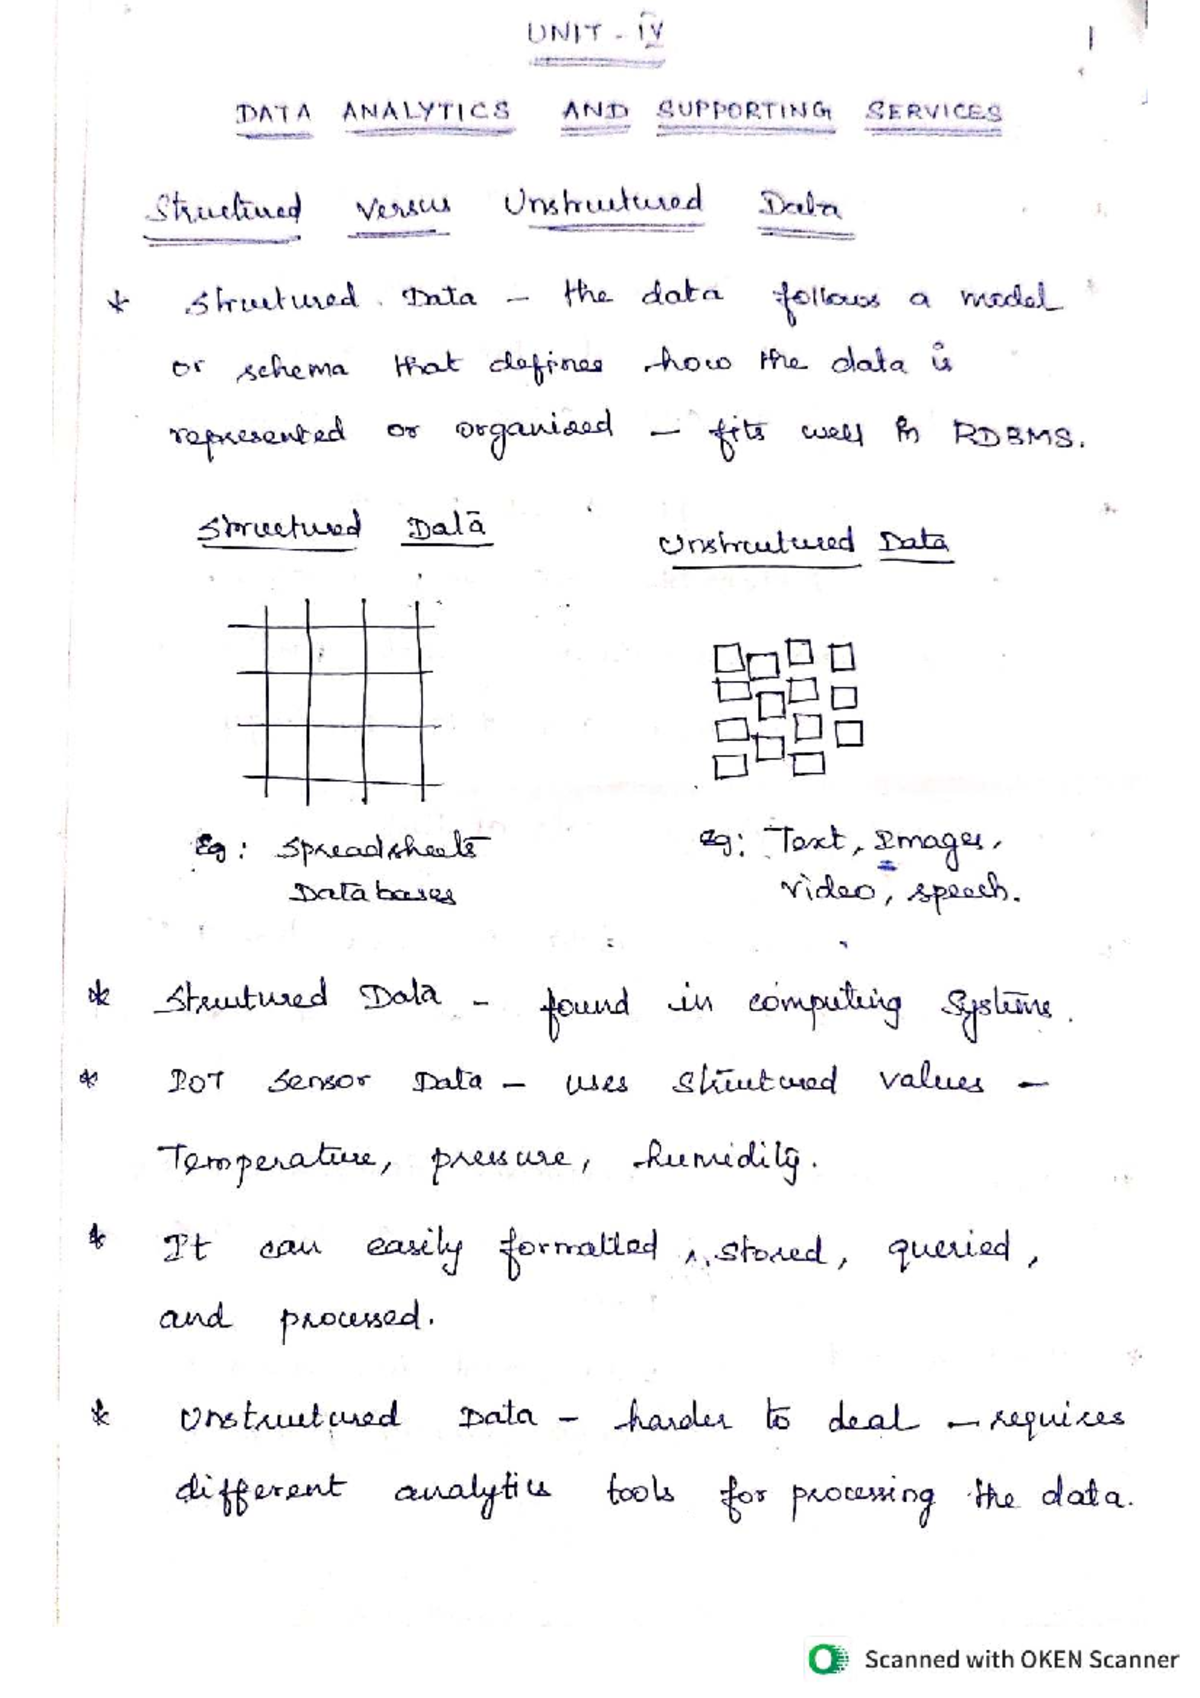 UNIT - IV
1
DATA ANALYTICS AND SUPPORTING SERVICES
Structured Versus Unstructured Data
* Structured Data - the data follows a model
or schema that defines how the data is
represented or organised - fits well in RDBMS.
Structured Data
Unstructured Data
Eg: Spreadsheets
Databases
eg: Text, Images,
video, speech.
* Structured Data - found in computing Systems.
* IOT Sensor Data - uses structured values -
Temperature, pressure, humidity.
* It can easily formatted, stored, queried,
and processed.
* Unstructured Data - harder to deal - requires
different analytics tools for processing the data.
Scanned with OKEN Scanner